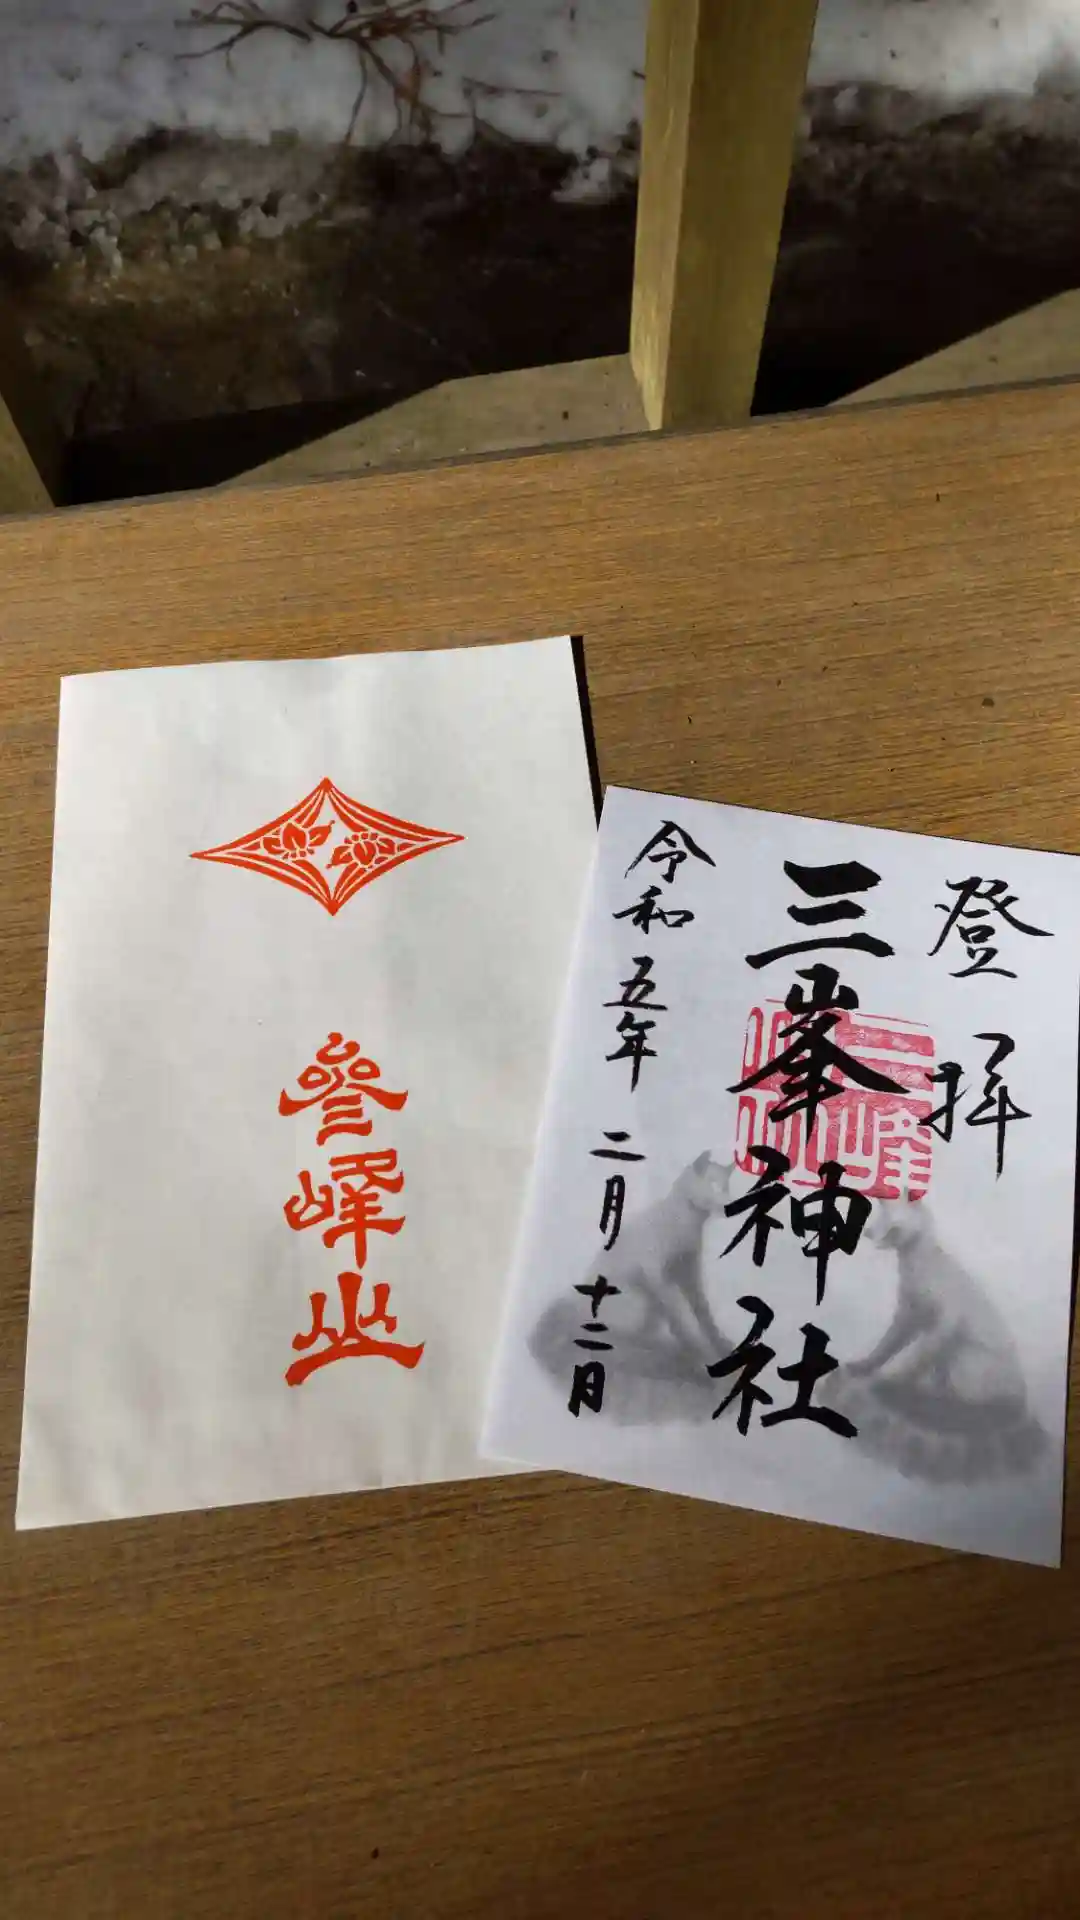 參峰山
登拝
三峯神社
三峰
令和五年二月十二日